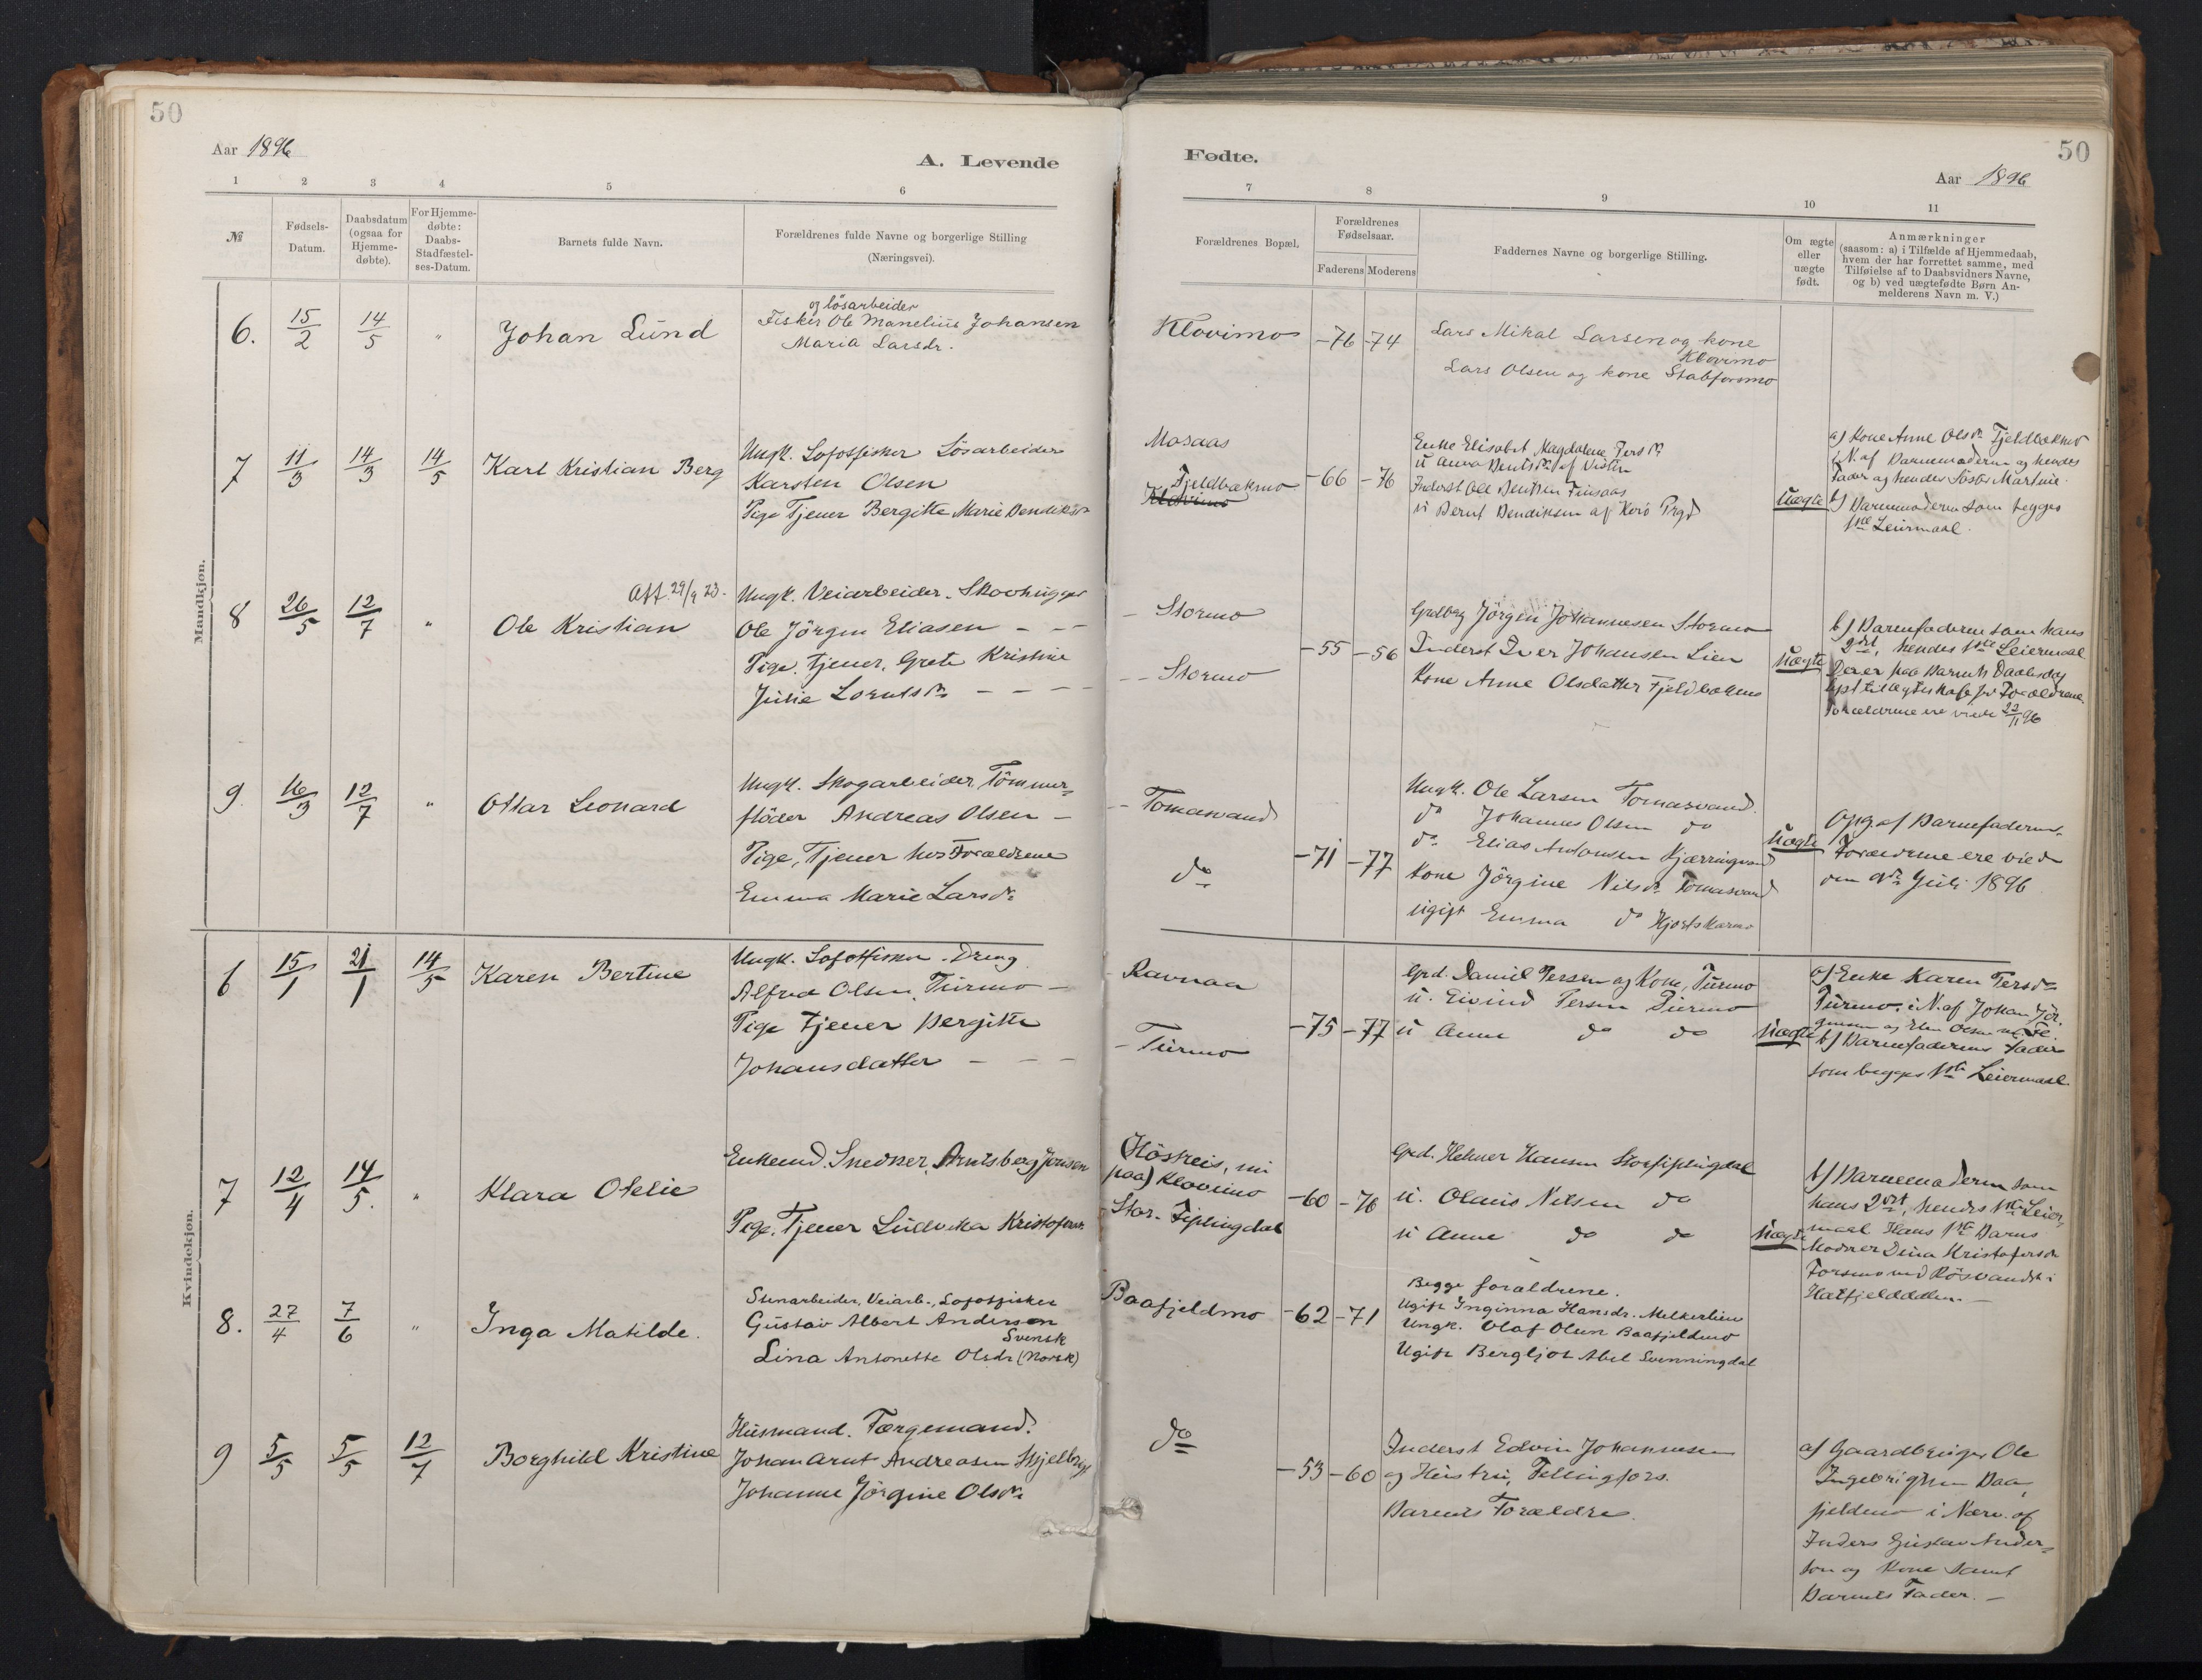 50
Aar 1896
A. Levende
1 2 3 4 5 6
№
Fødsels-
Datum.
Daabsdatum
(ogsaa for
Hjemme-
døbte).
For Hjemme-
døbte:
Daabs-
Stadfæstel-
ses-Datum.
Barnets fulde Navn.
Forældrenes fulde Navne og borgerlige Stilling
(Næringsvei).
Mandkjøn.
6. 15/2 14/5 " Johan Lund
og løsarbeider
Fisker Ole Manelius Johansen
Maria Larsdr.
7 11/3 14/3 14/5 Karl Kristian Berg
Ungk. Lofotfisker Løsarbeider
Karsten Olsen
Pige Tjener Bergitte Marie Bendiksdr
8 26/5 12/7 " Ole Kristian
Att. 29/9 23.
Ungk. Veiarbeider. Skovhugger
Ole Jörgen Eliasen - -
Pige. tjener, Grete Kristine
Julie Lorentsdr - - -
9. 16/3 12/7 " Ottar Leonard
Ungk. Skogarbeider, Tömmer=
flöder Andreas Olsen -
Pige, Tjener hos Forældrene
Emma Marie Larsdr
Kvindekjøn.
6 15/1 21/1 14/5 Karen Bertine
Ungk. Lofotfisker. Dreng
Alfred Olsen, Turmo -
Pige tjener Bergitte
Johansdatter - - -
7 12/4 14/5. " Klara Otelie
Enkemd. Snedker, Arntsberg Jonsen
Pige. Tjener Ludvika Kristofersdr
8. 27/4 7/6 " Inga Matilde.
Stenarbeider, Veiarb., Lofotfisker
Gustav Albert Anderson
Svensk
Lina Antonette Olsdr (Norsk)
9 5/5 5/5 12/7 Borghild Kristine
Husmand. Færgemand.
Johan Arnt Andreasen
Johanne Jörgine Olsdr
Fødte.
50
Aar 1896
7 8 9 10 11
Forældrenes Bopæl.
Forældrenes
Fødselsaar.
Faderens Moderens
Faddernes Navne og borgerlige Stilling.
Om ægte
eller
uægte
født.
Anmærkninger
(saasom: a) i Tilfælde af Hjemmedaab,
hvem der har forrettet samme, med
Tilføielse af to Daabsvidners Navne,
og b) ved uægtefødte Børn An-
melderens Navn m. V.)
Klovimo -76 -74
Lars Mikal Larsen og kone
Klovimo
Lars Olsen og kone Stabforsmo
Mosaas
Fjeldbakmo
Klovimo
-66 -76
Enke Elisabet Magdalene Persdr
u Anna Bentsdr af Visten
Inderst Ole Bentsen Finsaas
u Bernt Bendiksen af Herö Prgd
Uægte
a) Kone Anne Olsdr Fjeldbakmo
i N. af Barnemoderen og hendes
Fader og hendes Søster Martine.
b) Barnemoderen som begges
1ste Leiermaal.
- Stormo
- - Stormo
-55 -56
Grdbrg Jörgen Johannesen Stormo
Inderst Iver Johansen Lien
Kone Anne Olsdatter Fjeldbakmo
Uægte
b) Barnefaderen som hans
2det, hendes 1ste Leiermaal
Der er paa Barnets Daabsdag
lyst til Ægteskab for Forældrene.
Forældrene ere viede 22/11 96
- - Tomasvand
do
-71 -77
Ungk. Ole Larsen Tomasvand.
do Johannes Olsen do
do Elias Antonsen Kjærringvand
Kone Jörgine Nilsdr Tomasvand
ugift Emma do Hjortskarmo
Uægte
Opg. af Barnefaderen.
Forældrene ere viede
den 9de Juli 1896
Ravnaa
- Turmo
-75 -77
Grd. Daniel Persen og Kone, Turmo
u. Eivind Persen Turmo
u Anne do do
Uægte
a) Enke Karen Persdr
Turmo, i N. af Johan Jör=
gensen og Olsen
b) Barnefaderens Fader
som begges 1ste Leiermaal.
Höskeis, nu
paa) Klovimo
Stor-Fiplingdal
-60 -76
Grd. Helmer Hansen Storfiplingdal
u. Olaus Nilsen do
u Anne do do
Uægte
b) Barnemoderen som
hans 2det, hendes 1ste Leier=
maal Hans 1ste Barns
Moder er Dina Kristofersdr
Forsmo ved Rösvandet i
Hatfjelddalen. -
Baafjeldmo -62 -71
Begge forældrene.
Ugift Inginna Hansdr. Melkerlien
Ungk. Olaf Olsen Baafjeldmo
Ugift Bergljot Abel Svenningdal
do
-53 -60
Inderst Edvin Johannesen
og Hustru, Fellingfors.
Barnets Forældre.
a) Gaardbruger Ole
Ingebrigtsen Baa=
fjeldmo i Nærv. af
Inders Gustav Ander=
son og Kone samt
Barnets Fader. -